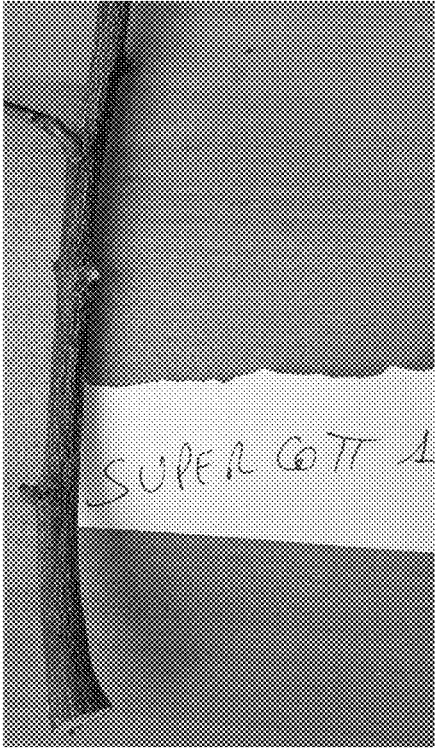 SUPER COTT 1